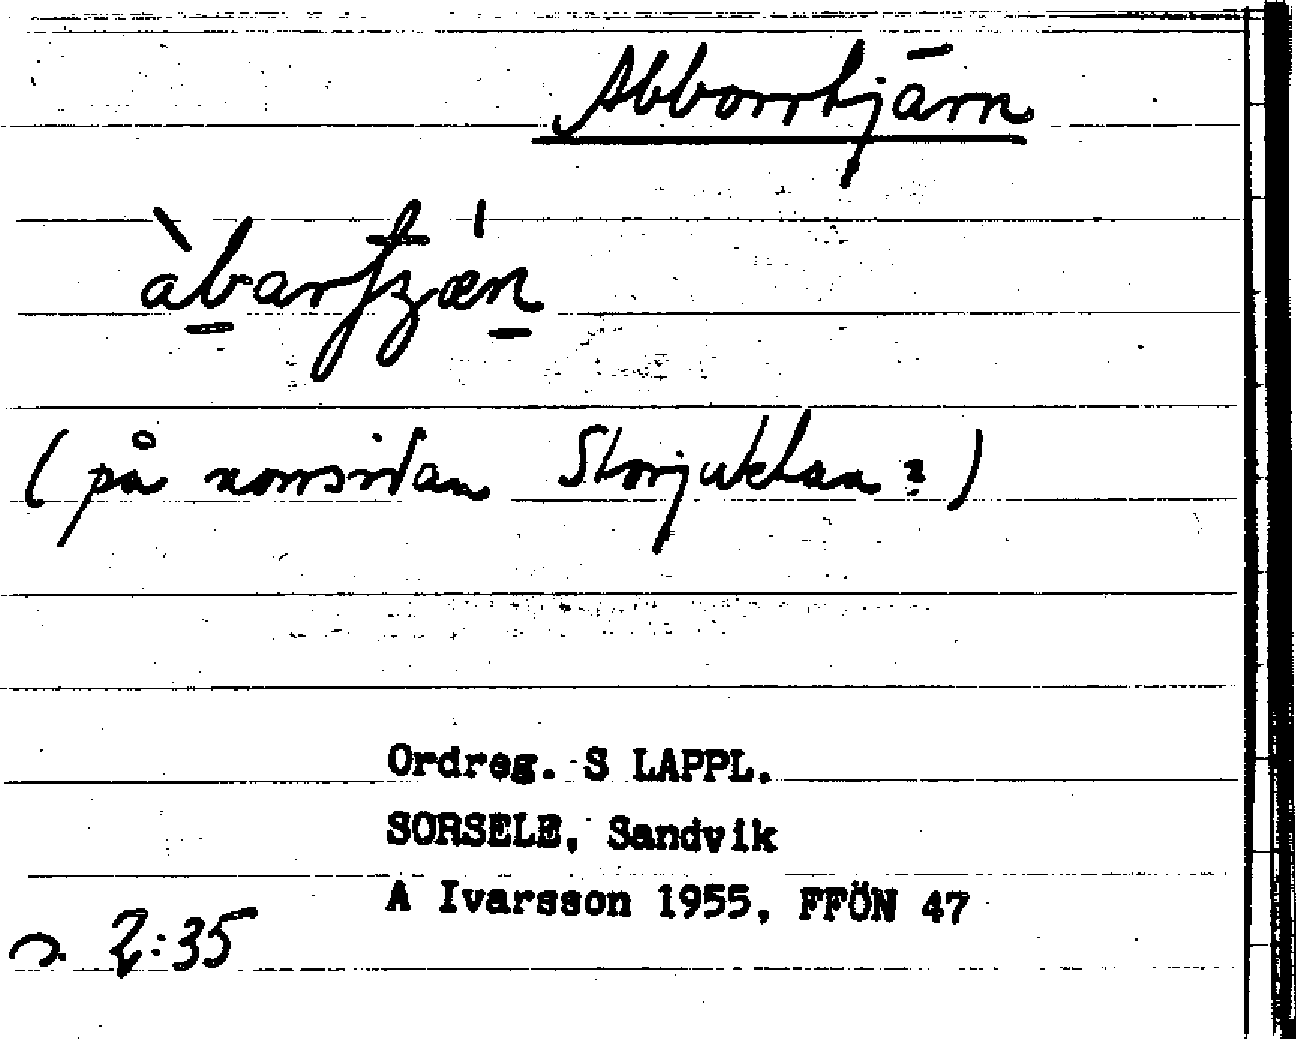 Abborrtjärn
àbartʒǽn
(på norrsidan Storjuktan?)
Ordreg. S LAPPL.
SORSELE, Sandvik
A Ivarsson 1955, FFÖN 47
s. 2:35